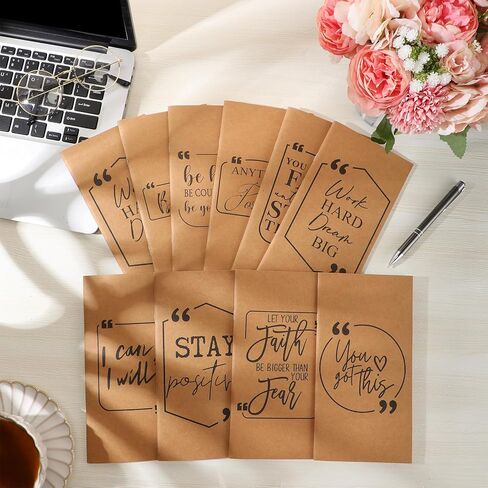 Work
HARD
Dream
BIG
be
BE COU
be yo
ANYT
YOU
F
ST
Work
HARD
Dream
BIG
I can
I will
STAY
positive
LET YOUR
Faith
BE BIGGER THAN
YOUR
Fear
You
got
this